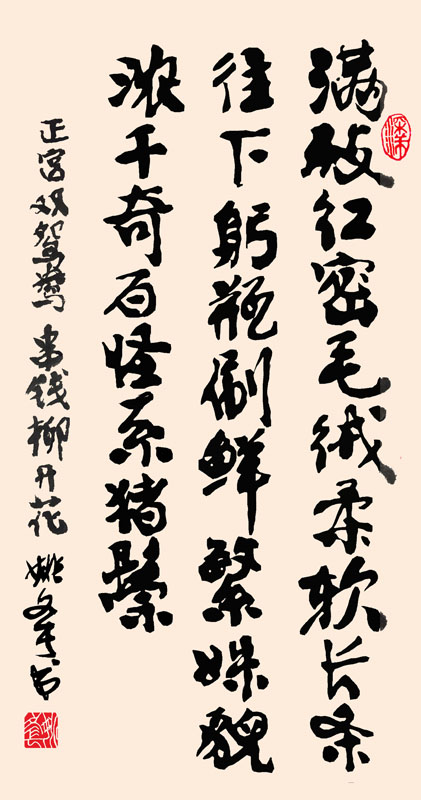 满枝红密毛绒柔软长条
往下躬瓶刷鲜繁姝貌
浓千奇百怪系猪鬃
正宫双鸳鸯 串钱柳开花 姚文 书